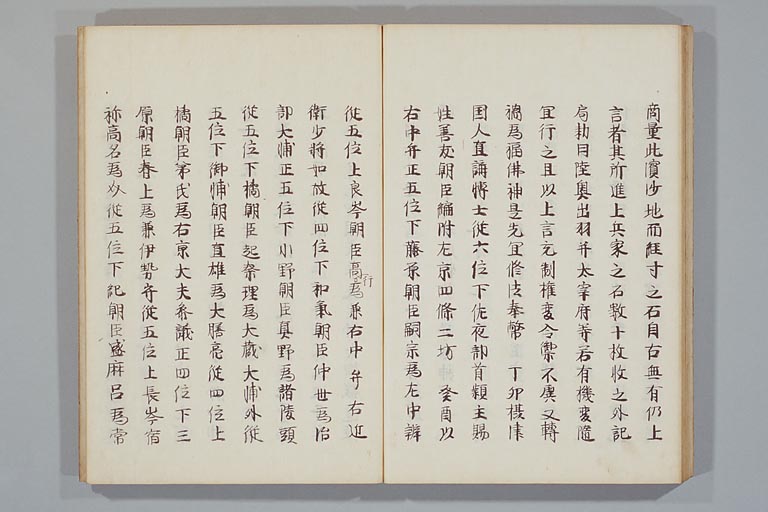 商量此濱沙地而徑寸之石自右無有仍上
言者其所進上兵家之石數十枚收之外記
局勅曰陸奧出羽并太宰府等若有機變隨
宜行之且以上言克制權變令禦不虞又轉
禍爲福佛神是先宜修法奉幣 丁卯攝津
国人直講博士從六位下佐夜部首穎主賜
姓善友朝臣編附左京四條二坊 癸酉以
右中弁正五位下藤原朝臣嗣宗爲左中辨
從五位上良岑朝臣高爲兼右中弁右近
行
衛少將如故從四位下和氣朝臣仲世爲治
部大浦正五位下小野朝臣真野爲諸陵頭
從五位下橘朝臣起奈理爲大蔵大浦外從
五位下御浦朝臣直雄爲大膳亮從四位上
橘朝臣弟氏爲右京大夫參議正四位下三
原朝臣春上爲兼伊勢守從五位上長岑宿
祢高名爲〻從五位下紀朝臣盛麻呂爲常